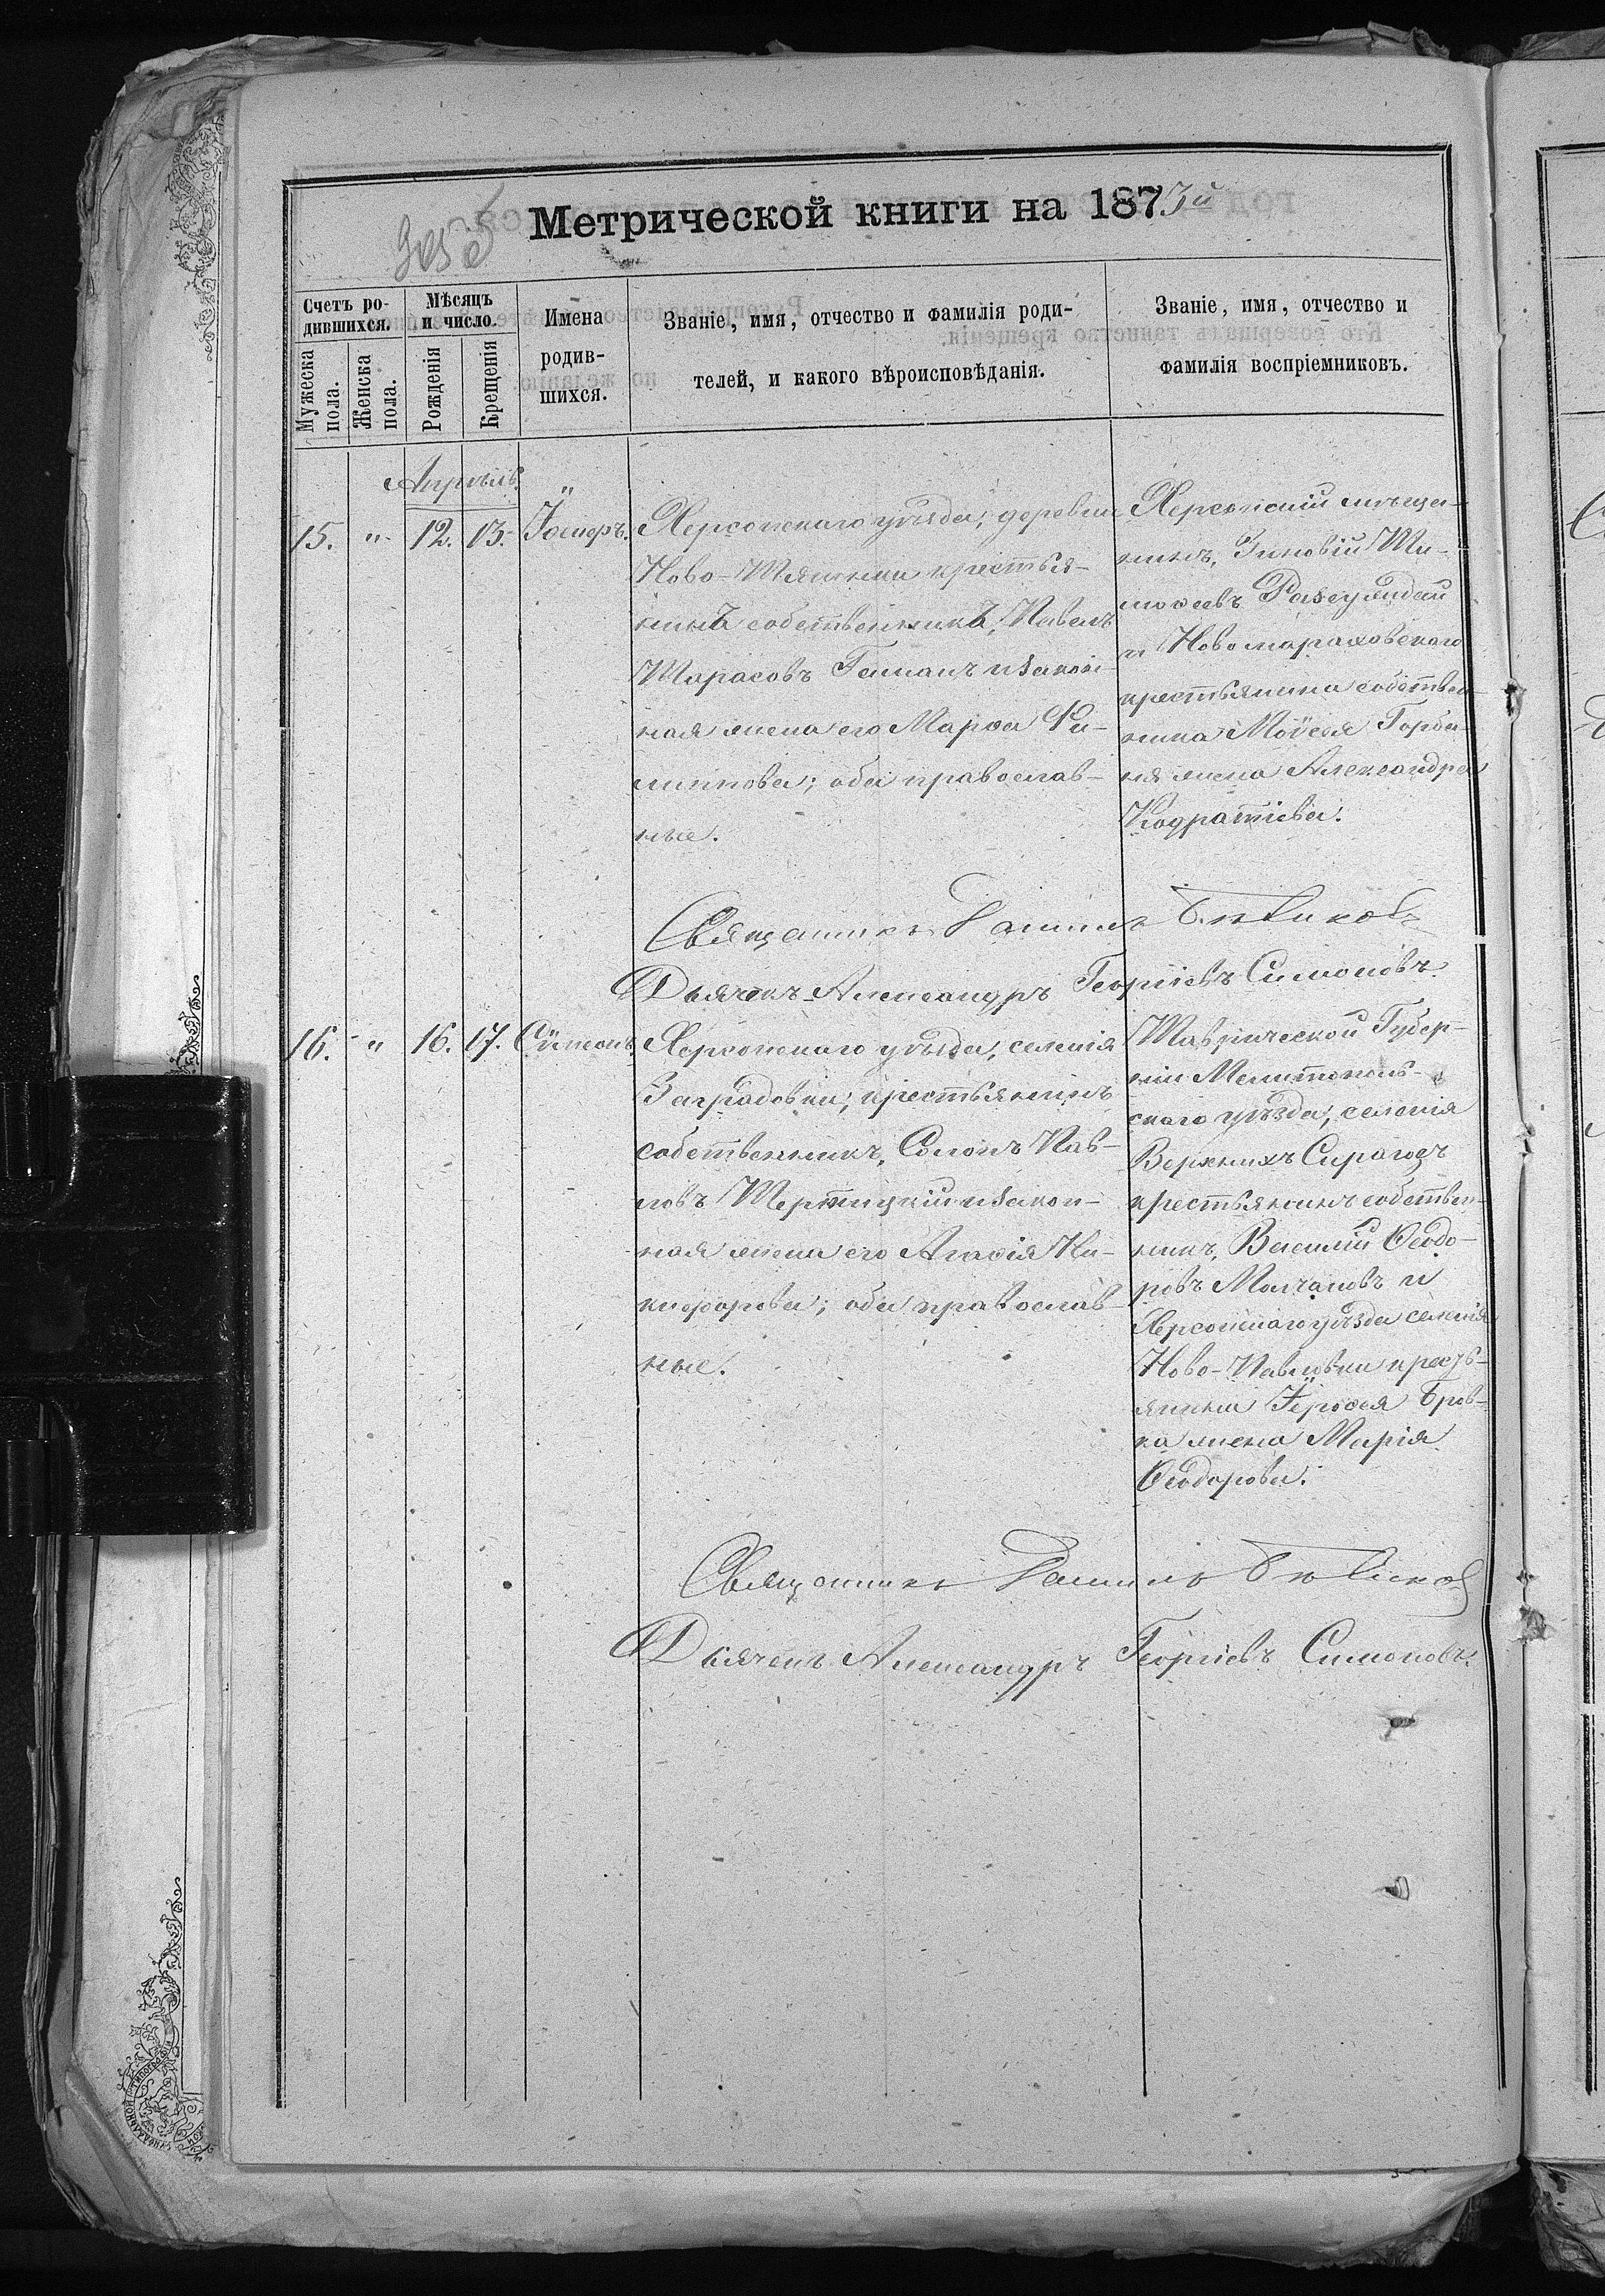 Метрической книги на 1873й
Счетъ ро-
дившихся.
Мужеска
пола.
Женска
пола.
Мѣсяцъ
и число.
Рожденія
Крещенія
Имена
родив-
шихся.
Званіе, имя, отчество и фамилія роди-
телей, и какого вѣроисповѣданія.
Званіе, имя, отчество и
фамилія воспріемниковъ.
Апрѣль.
15. " 12. 13. Іосифъ.
Херсонскаго уѣзда, деревни
крестья-
нинъ собственникъ, Павелъ
Тарасовъ и закон-
ная жена его Марѳа Фи-
липпова; оба православ-
ные.
Херсонскій мѣща-
нинъ, Зиновій Ти-
моѳеевъ
и
крестьянина собствен-
ника Моѵсея Горба-
ня жена Александра
Кодратіева.
Священникъ Даніилъ
Дьячекъ Александръ Георгіевъ Симоновъ.
16. " 16. 17. Сѵмеонъ.
Херсонскаго уѣзда, селенія
Заградовки; крестьянинъ
собственникъ, Павло-
въ и закон-
ная жена его Агафія Ни-
кифорова; оба православ-
ные.
Таврической Губер-
ніи Мелитополь-
скаго уѣзда, селенія
Верхнихъ Сирагозъ
крестьянинъ собствен-
никъ, Василій Ѳеодо-
ровъ Молчановъ и
Херсонскаго уѣзда селенія
Ново-Павловки
жена Марія
Ѳеодорова.
Священникъ Даніилъ
Дьячекъ Александръ Георгіевъ Симоновъ.